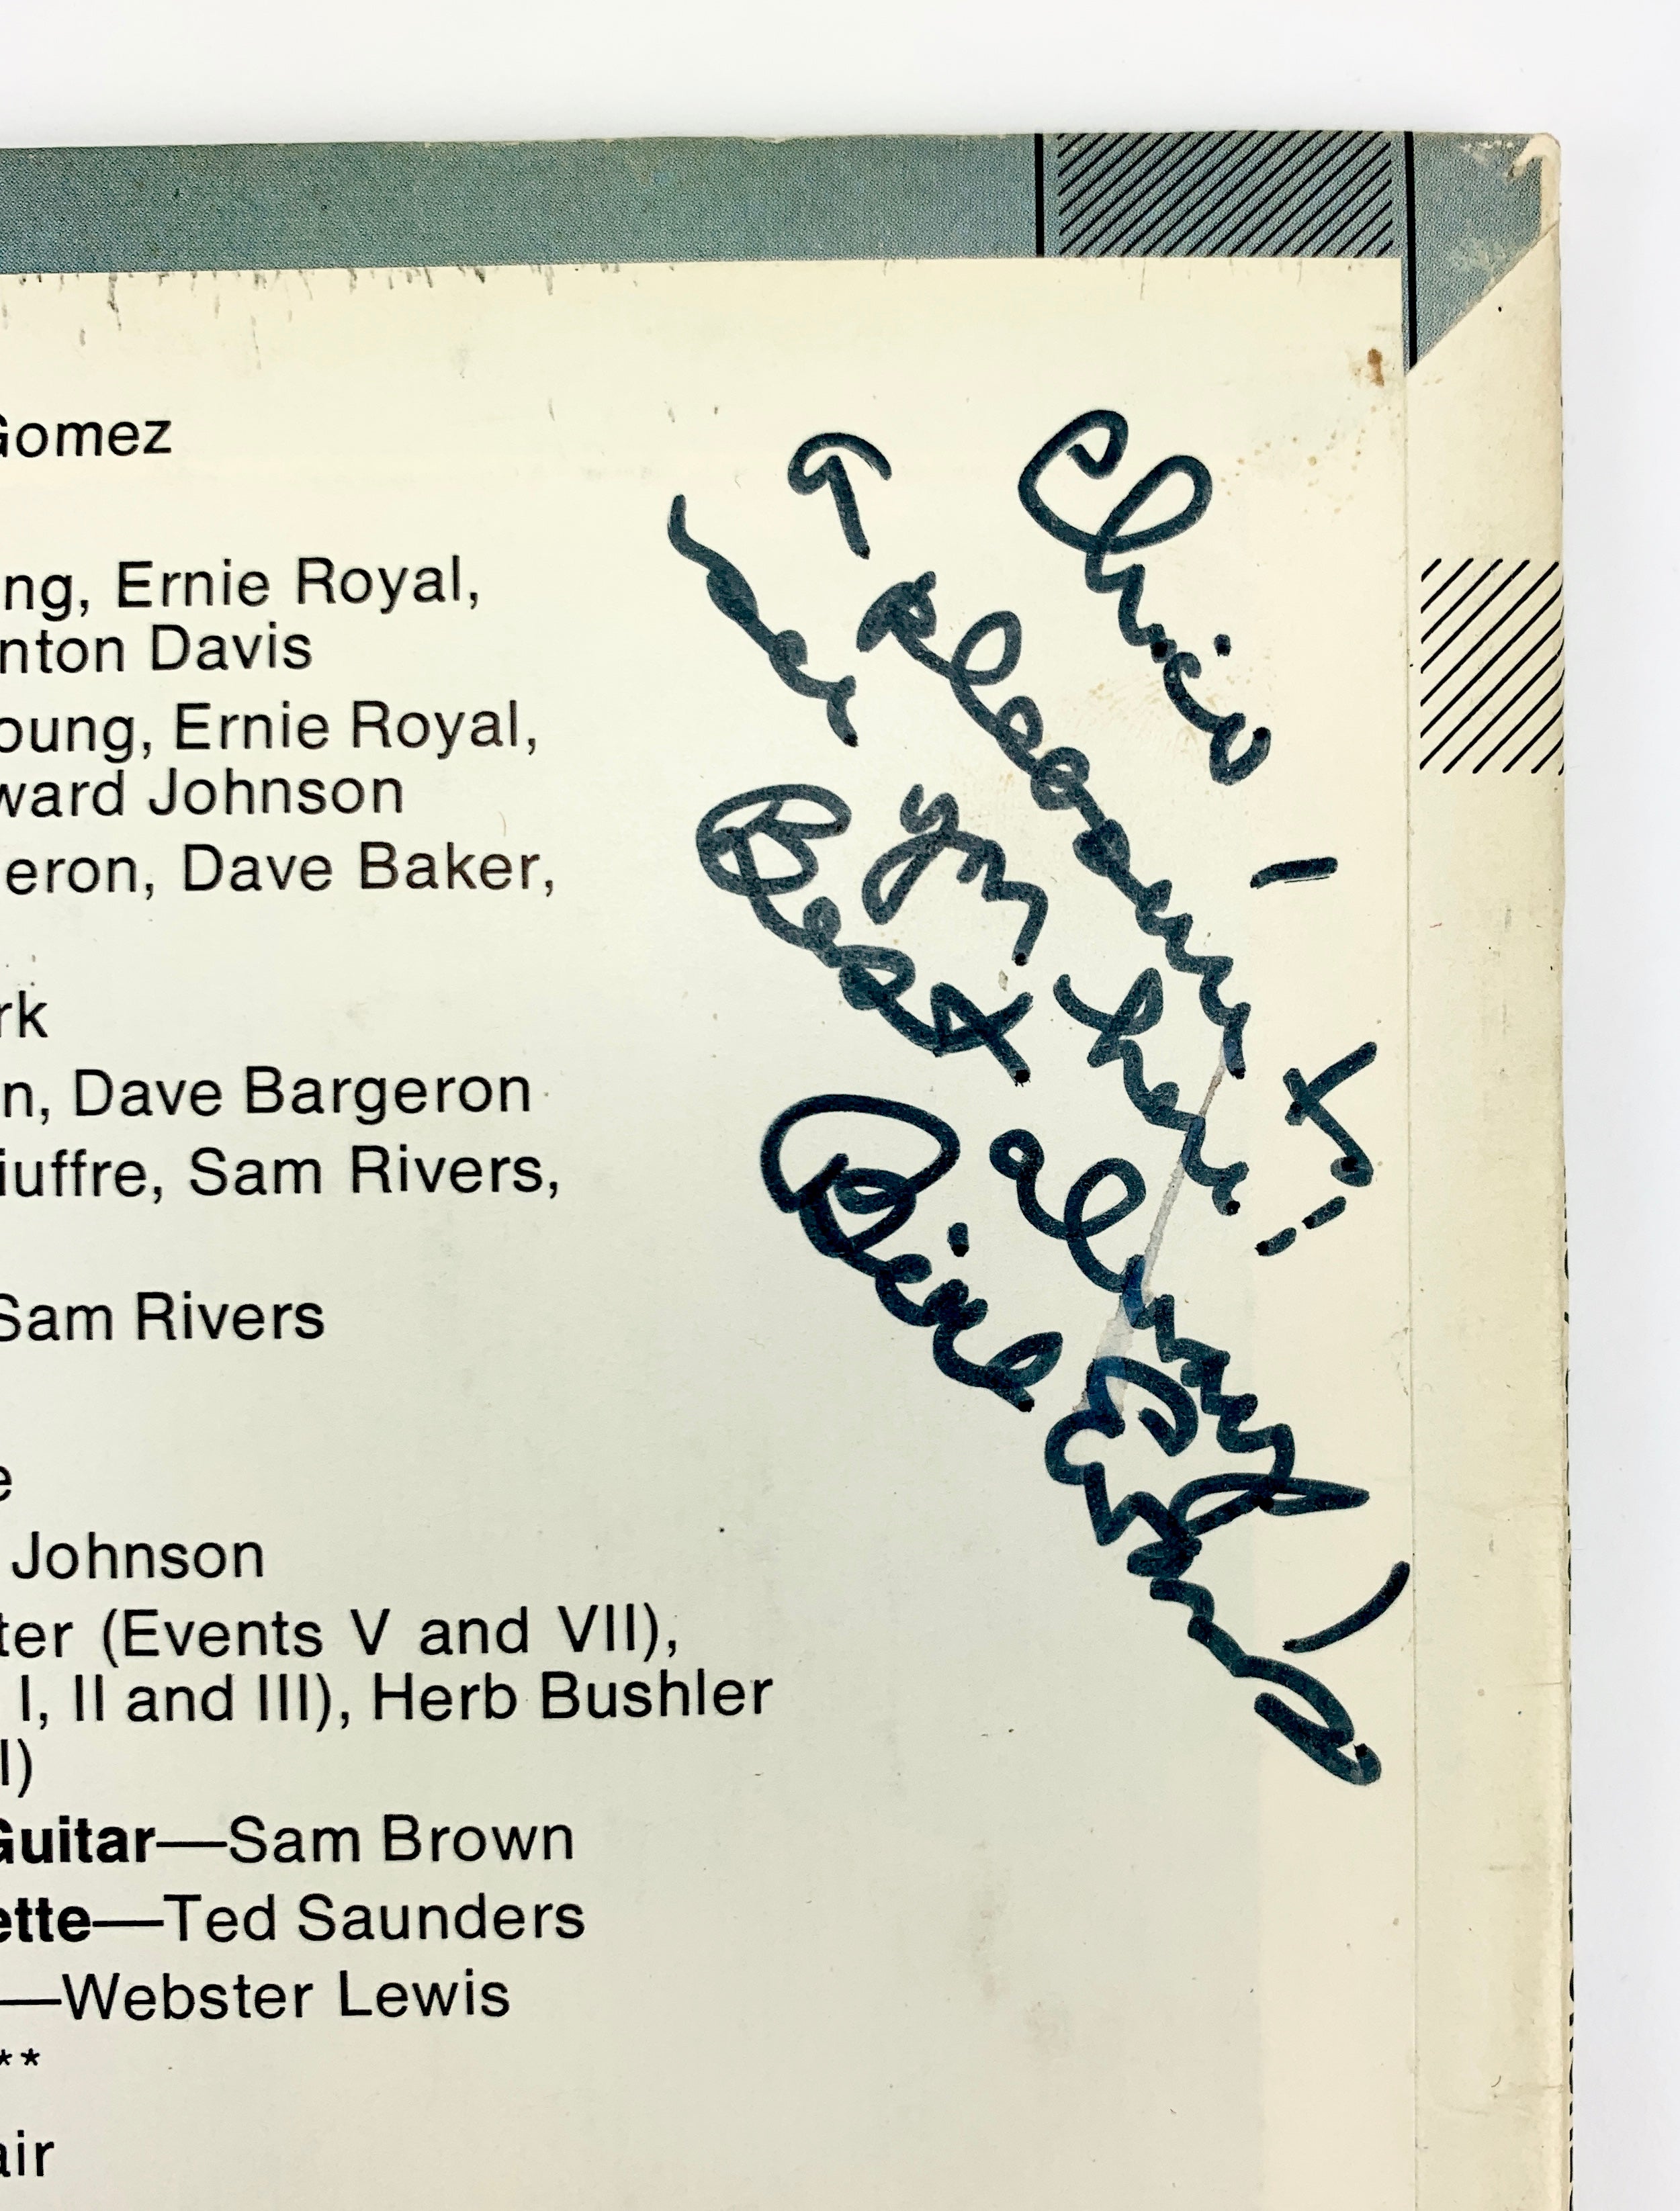 Gomez
ng, Ernie Royal,
nton Davis
oung, Ernie Royal,
ward Johnson
eron, Dave Baker,
rk
n, Dave Bargeron
iuffre, Sam Rivers,
Sam Rivers
e
Johnson
ter (Events V and VII),
I, II and III), Herb Bushler
I)
Guitar—Sam Brown
ette—Ted Saunders
—Webster Lewis
**
air
Chico —
A pleasure to
see you here
Best always,